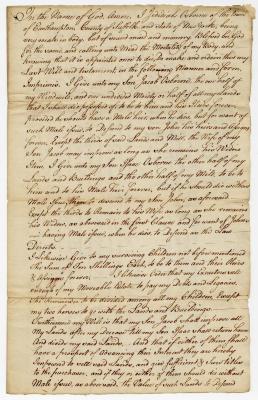 In the Name of God, Amen. I Jedidiah Osborne of the Town
of Southampton County of Suffolk and State of New York, being
very weak in body, but of sound mind and memory, Blessed be God
for the same, and calling unto Mind the Mortality of my Body, and
knowing that it is appointed once to die, do make and ordain this my
Last Will and testament, in the following Manner and form
Imprimis, I Give unto my son Jacob Osborne, the one half of
my and one undivided Moiety or half of all my lands
that I shall die possessed of, to be to him and his Heirs forever
provided he should have a Male heir, when he dies, but for want of
such Male Issue, to Descend to my son John his heirs and assigns
forever, Except the thirds of said Lands and Mill, the Wife of said
Son Jacob may improve as long as she remains his Widow
Item, I Give unto my Son Isaac Osborne the other half of my
Lands and Buildings and the other half of my Mill, to be to
him and to his Male heirs forever, but if he should die without
Male Issue, then to descend to my son John, as aforesaid
Except the thirds to remain to his Wife as long as she remains
his Widow, as aforesaid in the first Clause and for want of John's
having Male Issue, when he dies, to Descend as the Law
Directs
I likewise Give to my surviving Children not before mentioned
The Sum of Ten Shillings Each, to be to them and their Heirs
& Assigns forever. I likewise Order that my Executors sell
enough of my Moveable Estate to pay my Debts and Legacies
The Remainder to be divided among all my Children, Except
my two horses to go with the Lands and Buildings.
Furthermore my Will is that my Son Jacob shall improve all
My Lands after my Decease till my Son Isaac shall return home
And divide my said Lands. And if either of them shall
have a prospect of Advancing their Interest they are hereby
Impowered to sell said Lands, and give sufficient & Good titles
to the purchaser, and if they or either of them should die without
Male Issue, as aforesaid, the Value of such Lands to Descend